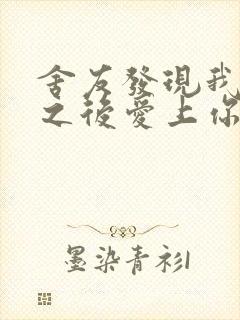 舍友發現我
之後愛上你
墨染青衫1